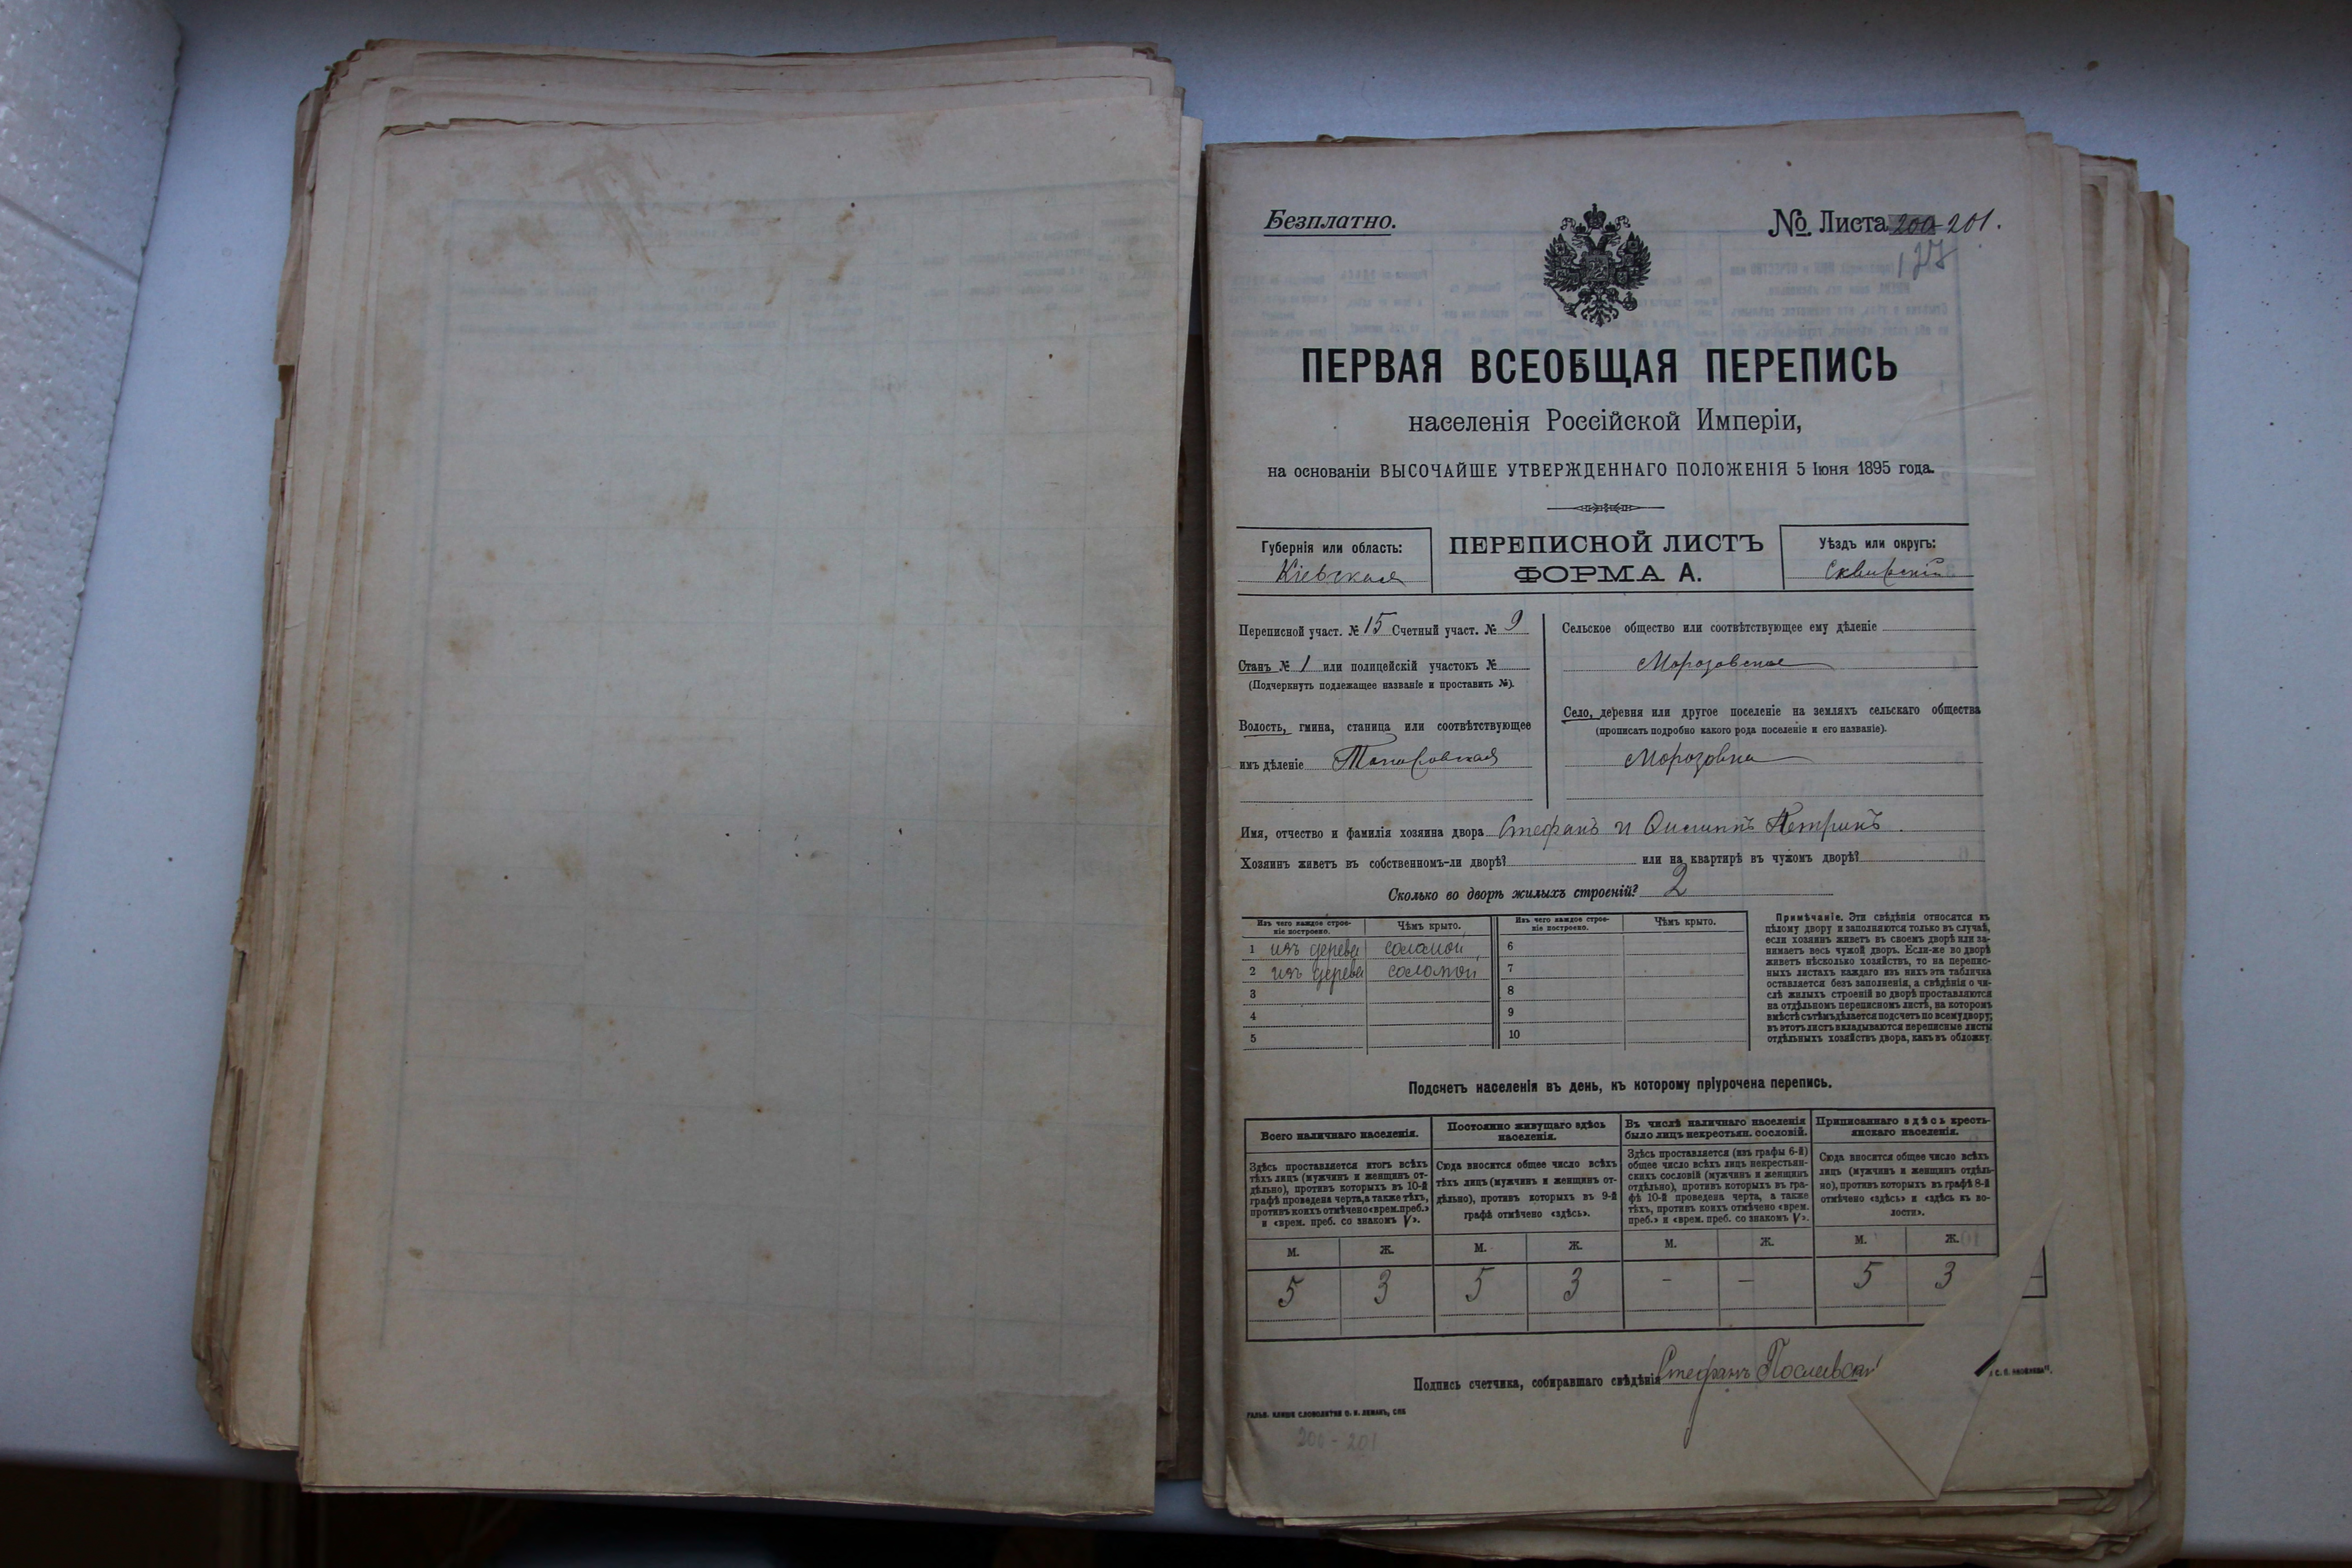 Безплатно.
№ Листа 200 201.
ПЕРВАЯ ВСЕОБЩАЯ ПЕРЕПИСЬ
населенія Россійской Имперіи,
на основаніи ВЫСОЧАЙШЕ УТВЕРЖДЕННАГО ПОЛОЖЕНІЯ 5 Іюня 1895 года.
Губернія или область:
Кіевская
ПЕРЕПИСНОЙ ЛИСТЪ
ФОРМА А.
Уѣздъ или округъ:
Сквирскій
Переписной участ. № 15 Счетный участ. № 9
Станъ № 1 или полицейскій участокъ №
(Подчеркнуть подлежащее названіе и проставить №).
Волость, гмина, станица или соотвѣтствующее
имъ дѣленіе
Сельское общество или соотвѣтствующее ему дѣленіе
Морозовское
Село, деревня или другое поселеніе на земляхъ сельскаго общества
(прописать подробно какого рода поселеніе и его названіе).
Морозовка
Имя, отчество и фамилія хозяина двора Стефанъ и
Хозяинъ живетъ въ собственномъ-ли дворѣ? или на квартирѣ въ чужомъ дворѣ?
Сколько во дворѣ жилыхъ строеній? 2
Изъ чего каждое строе-
ніе построено.
Чѣмъ крыто.
1 изъ дерева соломой
2 изъ дерева соломой
3
4
5
Изъ чего каждое строе-
ніе построено.
Чѣмъ крыто.
6
7
8
9
10
Примѣчаніе. Эти свѣдѣнія относятся къ
цѣлому двору и заполняются только въ случаѣ,
если хозяинъ живетъ въ своемъ дворѣ или за-
нимаетъ весь чужой дворъ. Если-же во дворѣ
живетъ нѣсколько хозяйствъ, то на перепис-
ныхъ листахъ каждаго изъ нихъ эта табличка
оставляется безъ заполненія, а свѣдѣнія о чи-
слѣ жилыхъ строеній во дворѣ проставляются
на отдѣльномъ переписномъ листѣ, на которомъ
вмѣстѣ съ тѣмъ дѣлается подсчетъ по всему двору;
въ этотъ листъ вкладываются переписные листы
отдѣльныхъ хозяйствъ двора, какъ въ обложку.
Подсчетъ населенія въ день, къ которому пріурочена перепись.
Всего наличнаго населенія.
Здѣсь проставляется итогъ всѣхъ
тѣхъ лицъ (мужчинъ и женщинъ от-
дѣльно), противъ которыхъ въ 10-й
графѣ проведена черта, а также тѣхъ,
противъ коихъ отмѣчено «врем. преб.»
и «врем. преб. со знакомъ V».
Постоянно живущаго здѣсь
населенія.
Сюда вносится общее число всѣхъ
тѣхъ лицъ (мужчинъ и женщинъ от-
дѣльно), противъ которыхъ въ 9-й
графѣ отмѣчено «здѣсь».
Въ числѣ наличнаго населенія
было лицъ некрестьян. сословій.
Здѣсь проставляется (изъ графы 6-й)
общее число всѣхъ лицъ некрестьян-
скихъ сословій (мужчинъ и женщинъ
отдѣльно), противъ которыхъ въ гра-
фѣ 10-й проведена черта, а также
тѣхъ, противъ коихъ отмѣчено «врем.
преб.» и «врем. преб. со знакомъ V».
Приписаннаго здѣсь кресть-
янскаго населенія.
Сюда вносится общее число всѣхъ
лицъ (мужчинъ и женщинъ отдѣль-
но), противъ которыхъ въ графѣ 8-й
отмѣчено «здѣсь» и «здѣсь въ во-
лости».
М. Ж. М. Ж. М. Ж. М. Ж.
5 3 5 3 - - 5 3
Подпись счетчика, собиравшаго свѣдѣнія Стефанъ
ГАЛЬВ. КЛИШЕ СЛОВОЛИТНИ О. И. ЛЕМАНЪ, СПБ
200 - 201